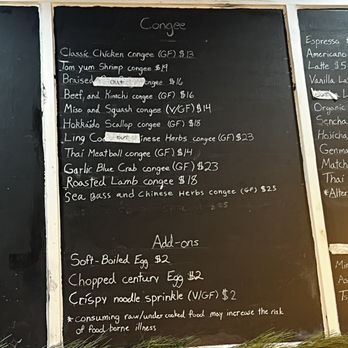 Congee
Classic Chicken congee (GF) $13
Tom yum Shrimp congee $19
Braised out congee $16
Beef, and Kimchi congee (GF) $16
Miso and Squash congee (V/GF) $14
Hokkaido Scallop congee (GF) $18
Ling Co out inese Herbs congee (GF) $23
Thai Meatball congee (GF) $14
Garlic Blue Crab congee (GF) $23
Roasted Lamb congee $18
Sea Bass and Chinese Herbs congee (GF) $25
Add-ons
Soft-Boiled Egg $2
Chopped century Egg $2
Crispy noodle sprinkle (V/GF) $2
*consuming raw/under cooked food may increase the risk
of food borne illness
Espresso
Americano
Latte $5
Vanilla L
L
Organic
Sencha
Hojicha
Genma
Matcha
Thai
*Alter